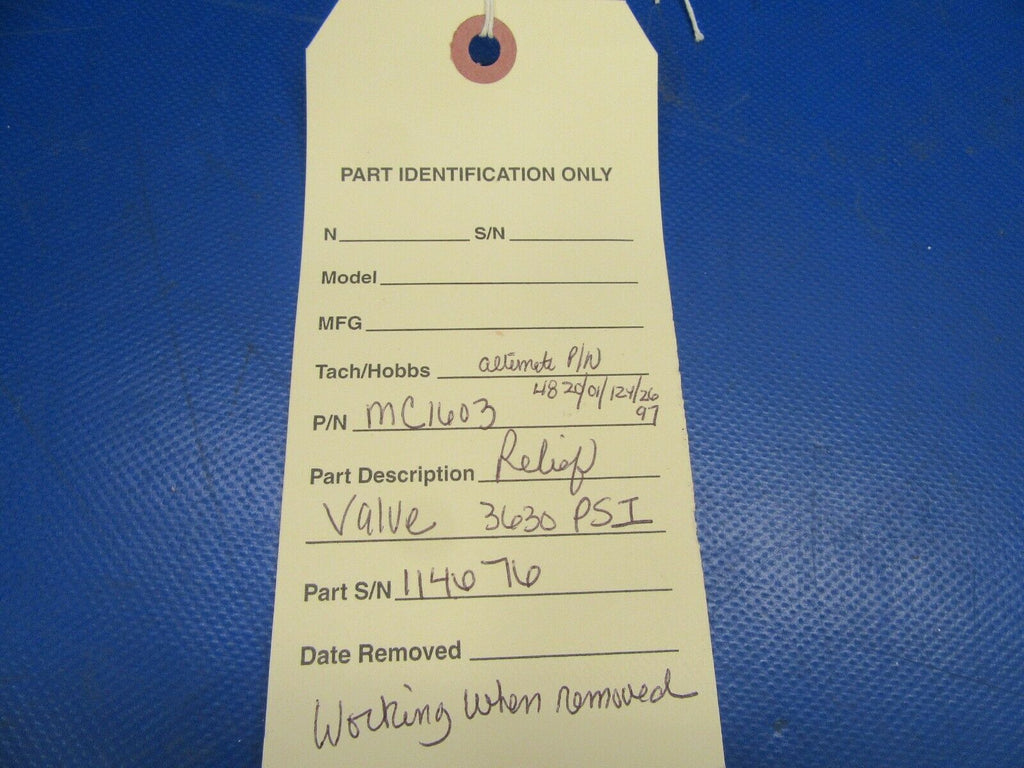 PART IDENTIFICATION ONLY
N S/N
Model
MFG
Tach/Hobbs alternate P/N
4820/01/124/26
P/N MC1603 97
Part Description Relief
Valve 3630 PSI
Part S/N 114676
Date Removed
Working when removed